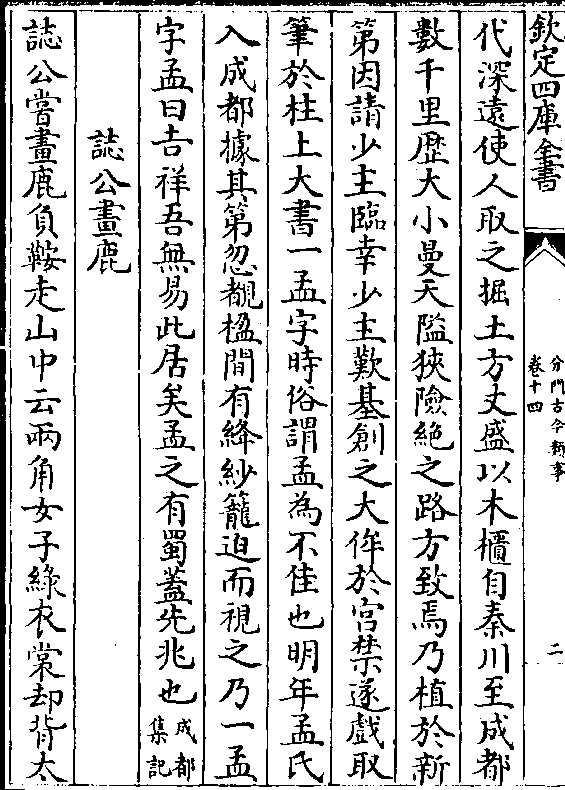 欽定四庫全書
分門古今類事
卷十四
二
代深遠使人取之掘土方丈盛以木櫃自秦川至成都
數千里歷大小曼天隘狹險絶之路方致焉乃植於新
第因請少主臨幸少主歎基創之大侔於宮禁遂戲取
筆於柱上大書一孟字時俗謂孟為不佳也明年孟氏
入成都據其第忽覩楹間有絳紗籠迫而視之乃一孟
字孟曰吉祥吾無易此居矣孟之有蜀蓋先兆也成都
集記
誌公畫鹿
誌公嘗畫鹿負鞍走山中云兩角女子緑衣裳却背太